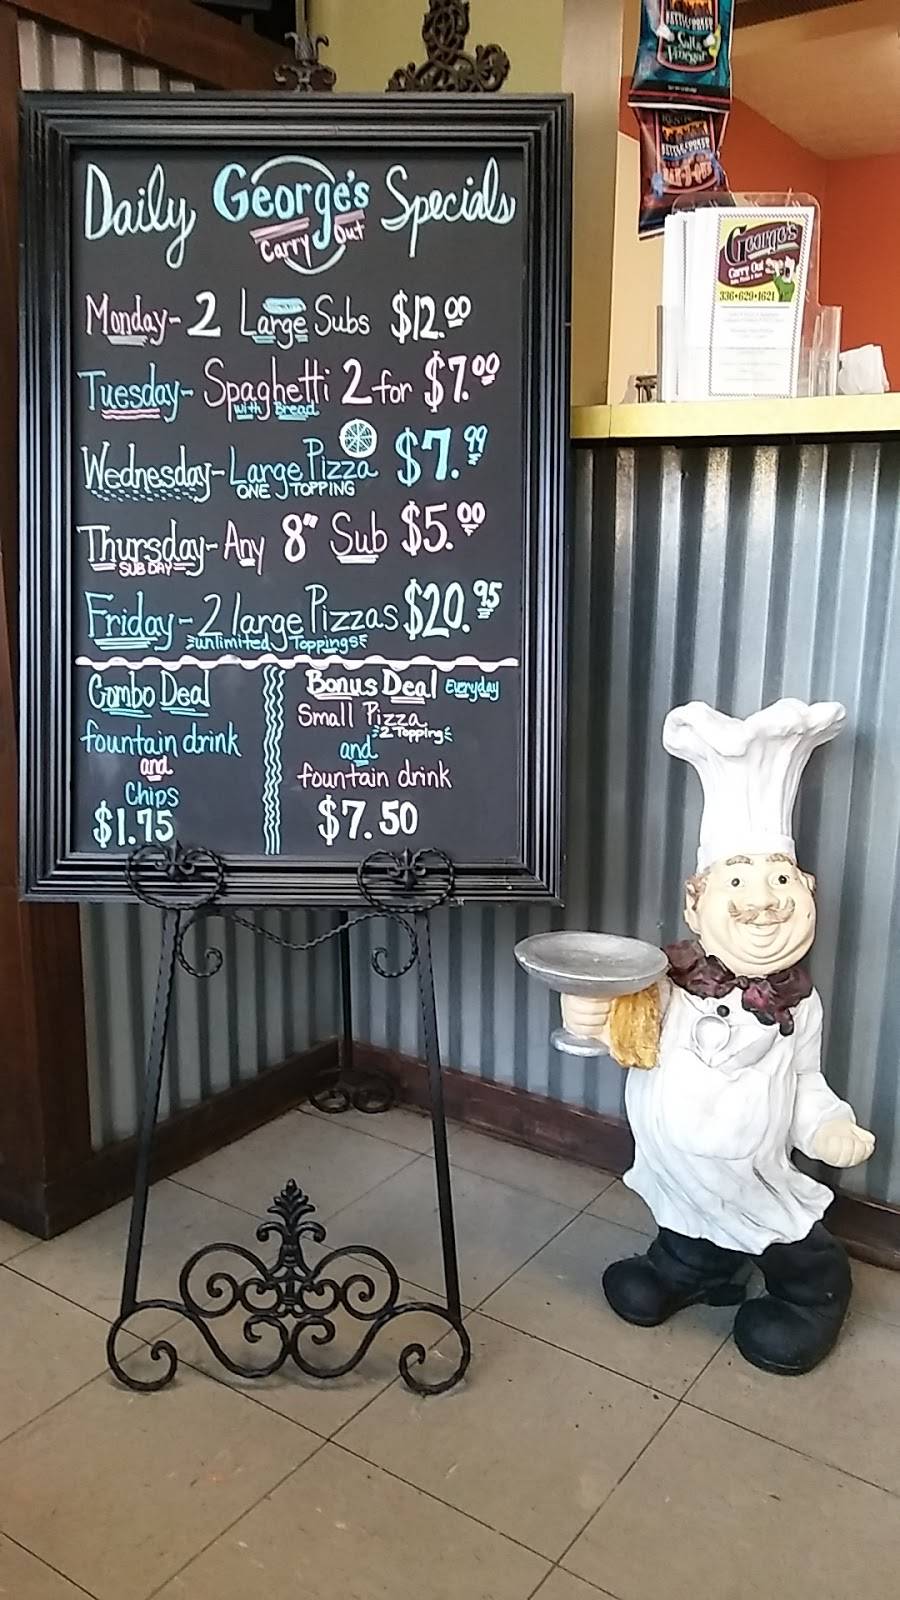 Daily George's Specials
Carry Out
Monday - 2 Large Subs $12.00
Tuesday - Spaghetti 2 for $7.00
with Bread
Wednesday - Large Pizza $7.99
ONE TOPPING
Thursday - Any 8" Sub $5.00
SUB DAY
Friday - 2 large Pizzas $20.95
unlimited Toppings
Combo Deal
fountain drink
and
Chips
$1.75
Bonus Deal Everyday
Small Pizza
2 Topping
and
fountain drink
$7.50
KETTLE COOKED
Salt &
Vinegar
KETTLE COOKED
BAR-B-QUE
George's
Carry Out
336•629•1621